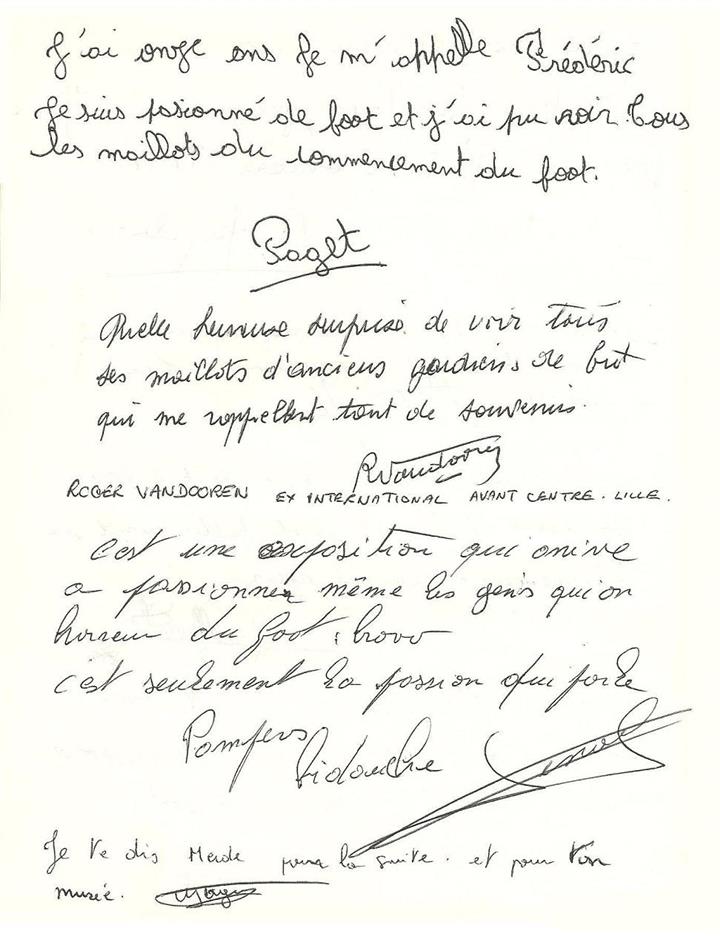 J'ai onze ans Je m'appelle Frédéric
Je suis pasionné de foot et j'ai pu voir tous
les maillots du commencement du foot.
Paget
Quelle heureuse surprise de voir tous
ses maillots d'anciens gardiens de but
qui me rappellent tant de souvenirs.
RVandooren
ROGER VANDOOREN EX INTERNATIONAL AVANT CENTRE. LILLE.
C'est une exposition qui arrive
a passionner même les gens qui on
horreur du foot, bravo
C'est seulement la passion qui parle
Pompero
Bidouche
Je te dis Merde pour la suite. et pour ton
musée.